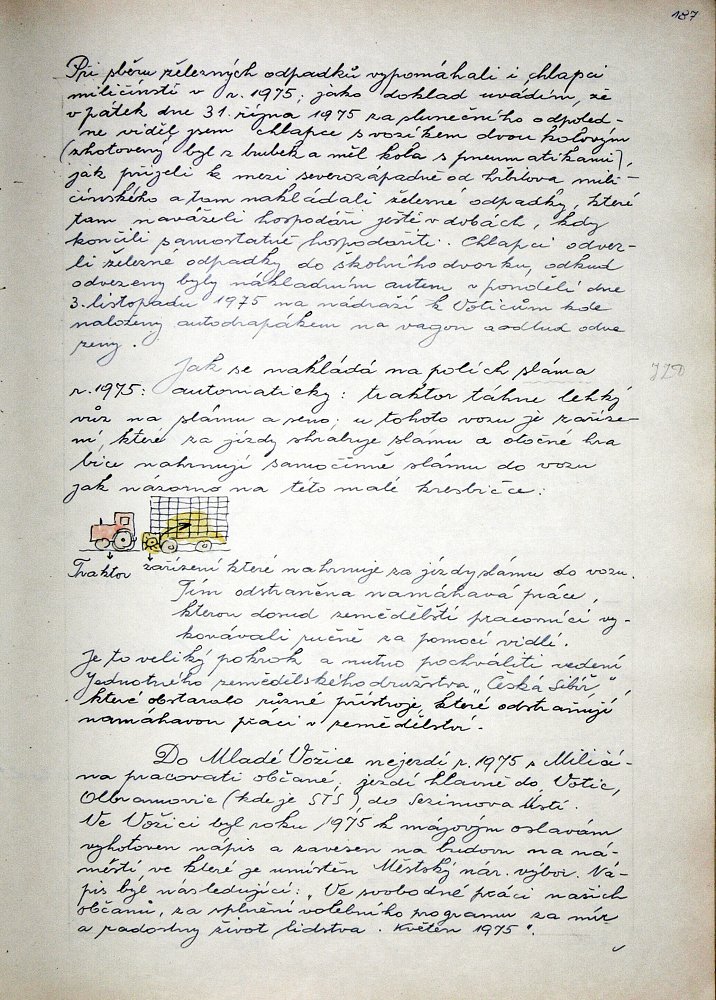 187
Při sběru železných odpadků vypomáhali i chlapci
miličínští v r. 1975; jako doklad uvádím, že
v pátek dne 31. října 1975 za slunečního odpoled-
ne viděl jsem chlapce s vozíkem dvou kolovým
(zhotovený byl z trubek a měl kola s pneumatikami),
jak přijeli k mezi severozápadně od hřbitova mili-
čínského a tam nakládali železné odpadky, které
tam naváželi hospodáři ještě v dobách, kdy
končili samostatně hospodařiti. Chlapci odvez-
li železné odpadky do školního dvorku, odkud
odvezeny byly nákladním autem v pondělí dne
3. listopadu 1975 na nádraží k Voticům kde
naloženy autodrapákem na vagon a odtud odve
zeny.
Jak se nakládá na polích sláma
JZD
r. 1975: automaticky: traktor táhne lehký
vůz na slámu a seno, u tohoto vozu je zaříze-
ní, které za jízdy shrabuje slámu a otočné hra
bice nahrnují samočinně slámu do vozu
jak názorno na této malé kresbičce:
Traktor zařízení které nahrnuje za jízdy slámu do vozu.
Tím odstraněna namáhavá práce,
kterou dosud zemědělští pracovníci vy-
konávali ručně za pomoci vidlí.
Je to veliký pokrok a nutno pochváliti vedení
Jednotného zemědělského družstva „Česká Sibiř",
které obstaralo různé přístroje, které odstraňují
namáhavou práci v zemědělství.
Do Mladé Vožice nejezdí r. 1975 z Miličí-
na pracovati občané, jezdí hlavně do Votic,
Olbramovic (kde je STS), do Sezimova Ústí.
Ve Vožici byl roku 1975 k májovým oslavám
vyhotoven nápis a zavesen na budovu na ná-
městí, ve které je umístěn Městský nár. výbor. Ná-
pis byl následující: „Ve svobodné práci našich
občanů, za splnění volebního programu za mír
a radostný život lidstva. Květen 1975".